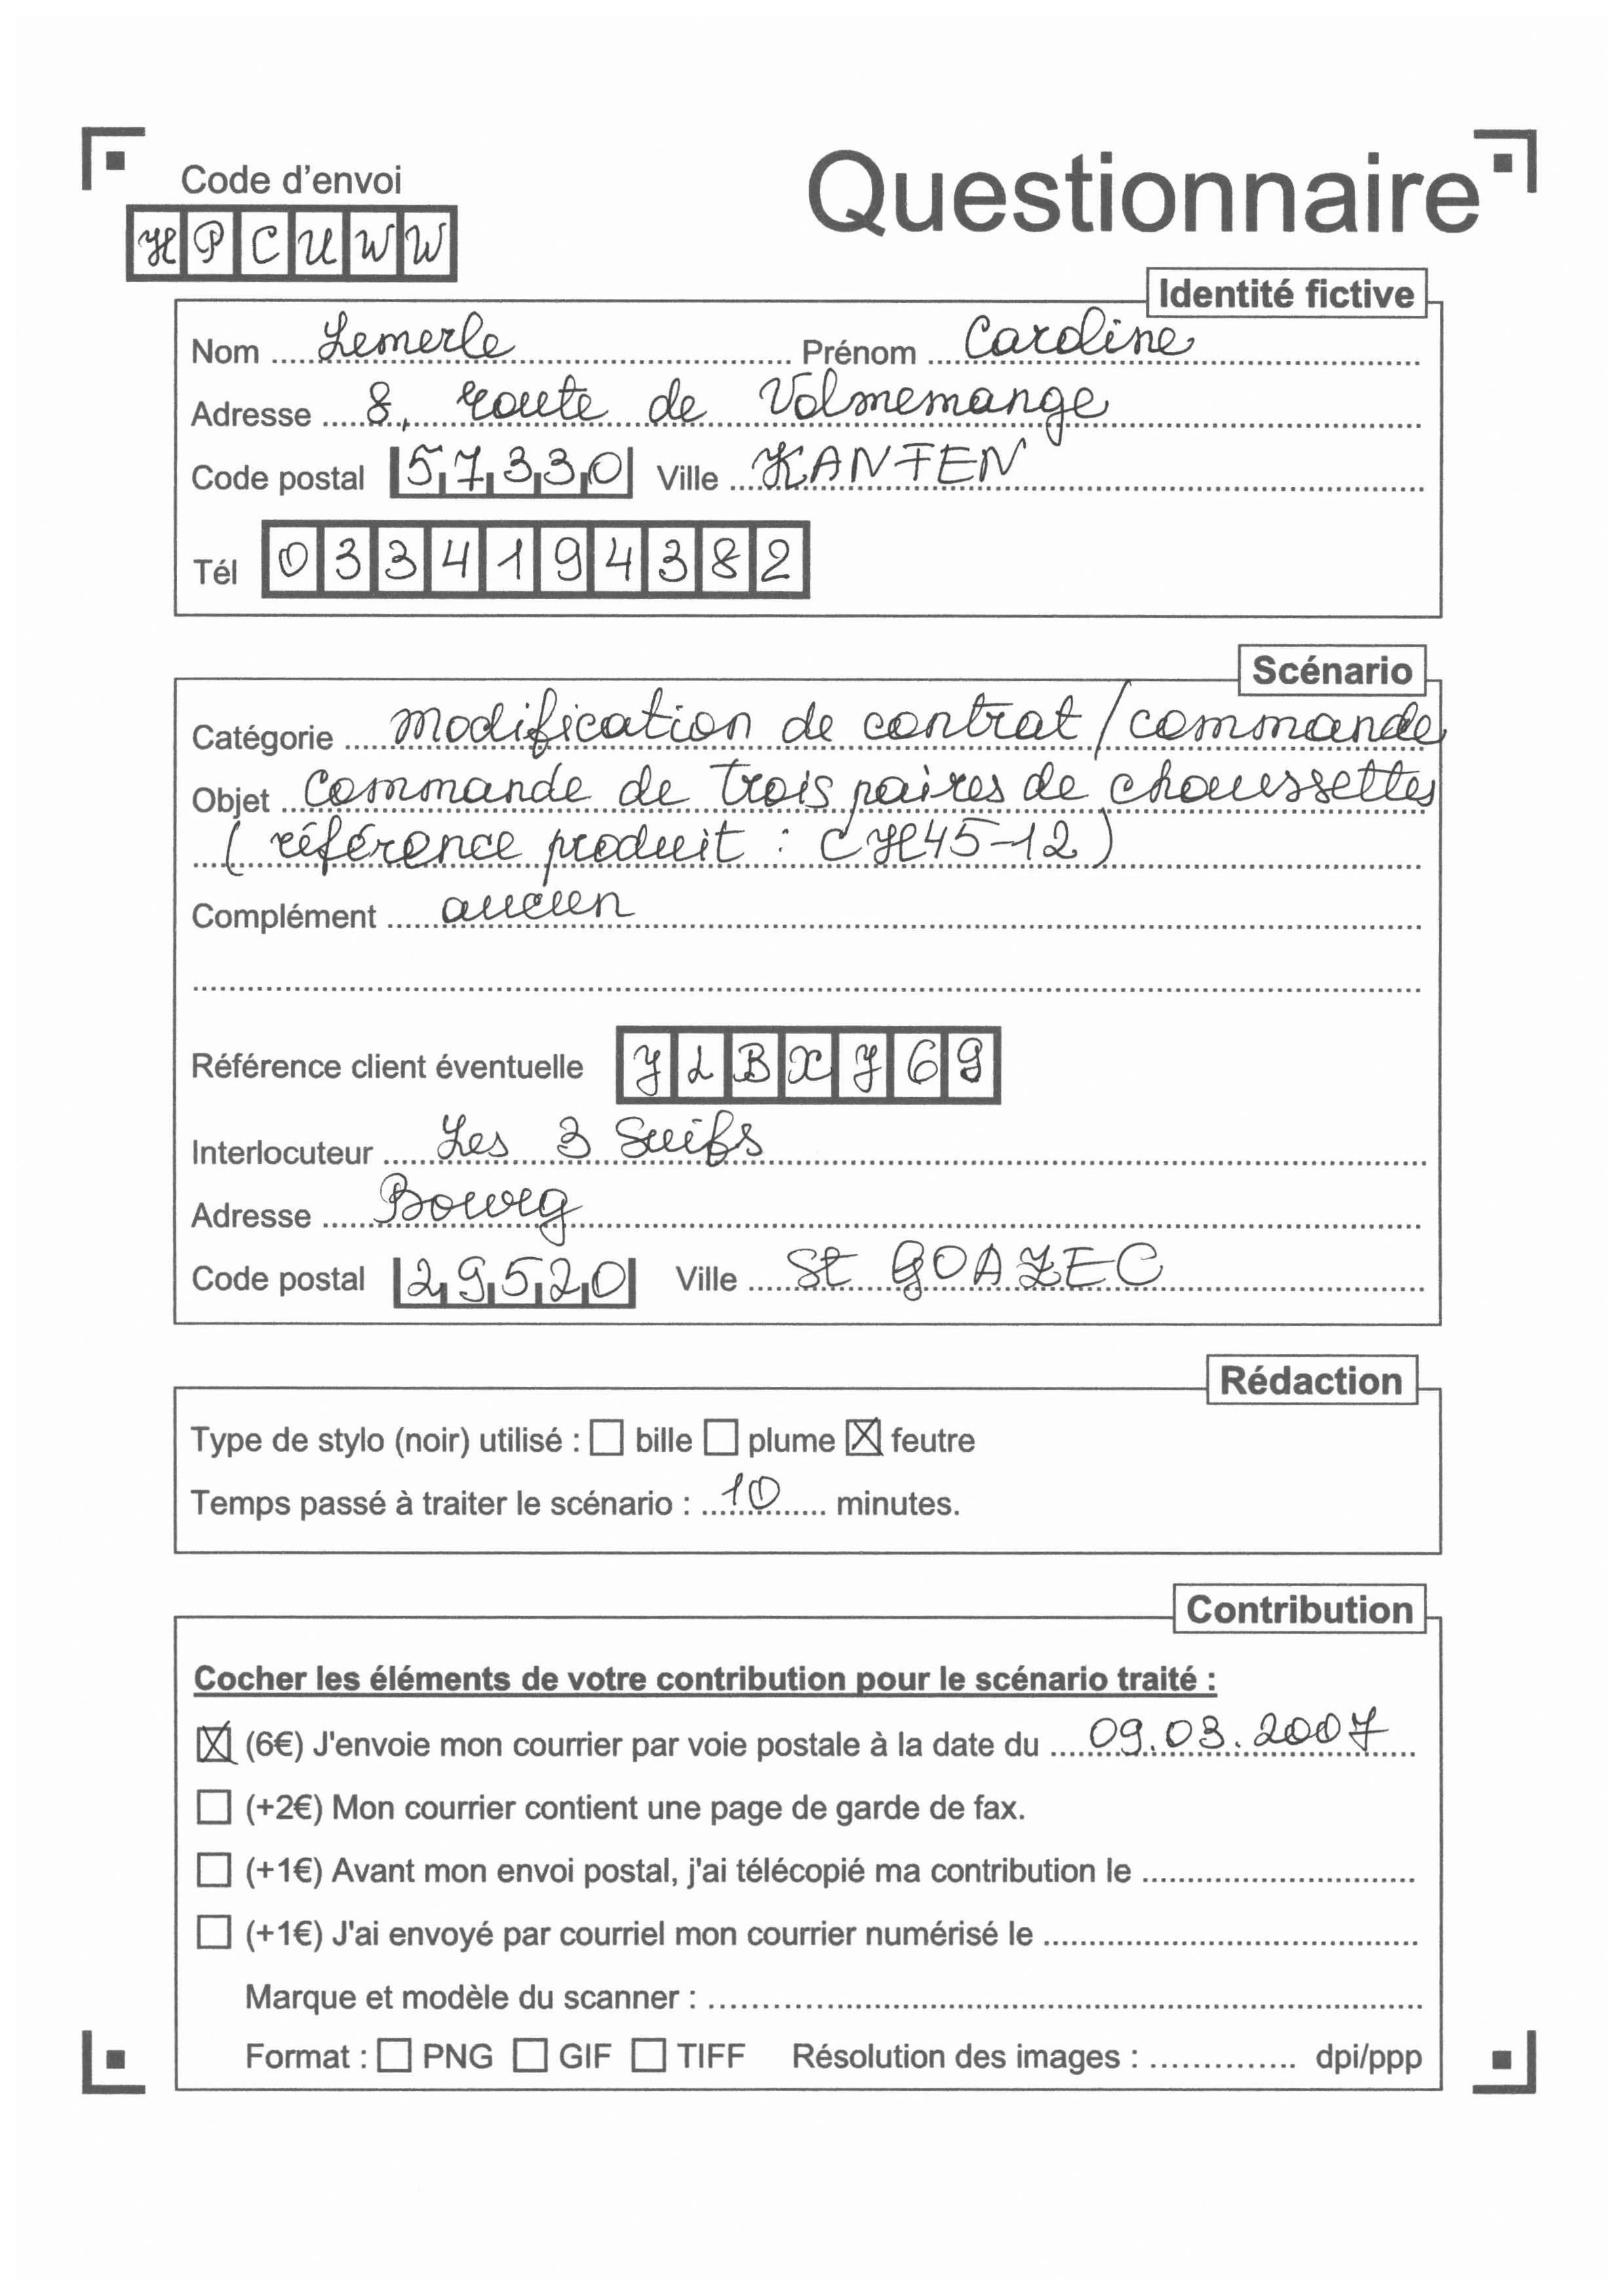 Code d'envoi
Questionnaire
HPCUWW
Identité fictive
Nom Lemerle Prénom Caroline
Adresse 8, route de Volmemange
Code postal 57330 Ville KANFEN
Tél 0334194382
Scénario
Catégorie modification de contrat / commande
Objet Commande de trois paires de choussettes
( référence produit : CH45-12)
Complément aucun
Référence client éventuelle YLBXY69
Interlocuteur Les 3 Suifs
Adresse Bourg
Code postal 29520 Ville St GOAZEC
Rédaction
Type de stylo (noir) utilisé : bille plume feutre
Temps passé à traiter le scénario : 10 minutes.
Contribution
Cocher les éléments de votre contribution pour le scénario traité :
(6€) J'envoie mon courrier par voie postale à la date du 09.03.2007
(+2€) Mon courrier contient une page de garde de fax.
(+1€) Avant mon envoi postal, j'ai télécopié ma contribution le
(+1€) J'ai envoyé par courriel mon courrier numérisé le
Marque et modèle du scanner :
Format : PNG GIF TIFF Résolution des images : dpi/ppp